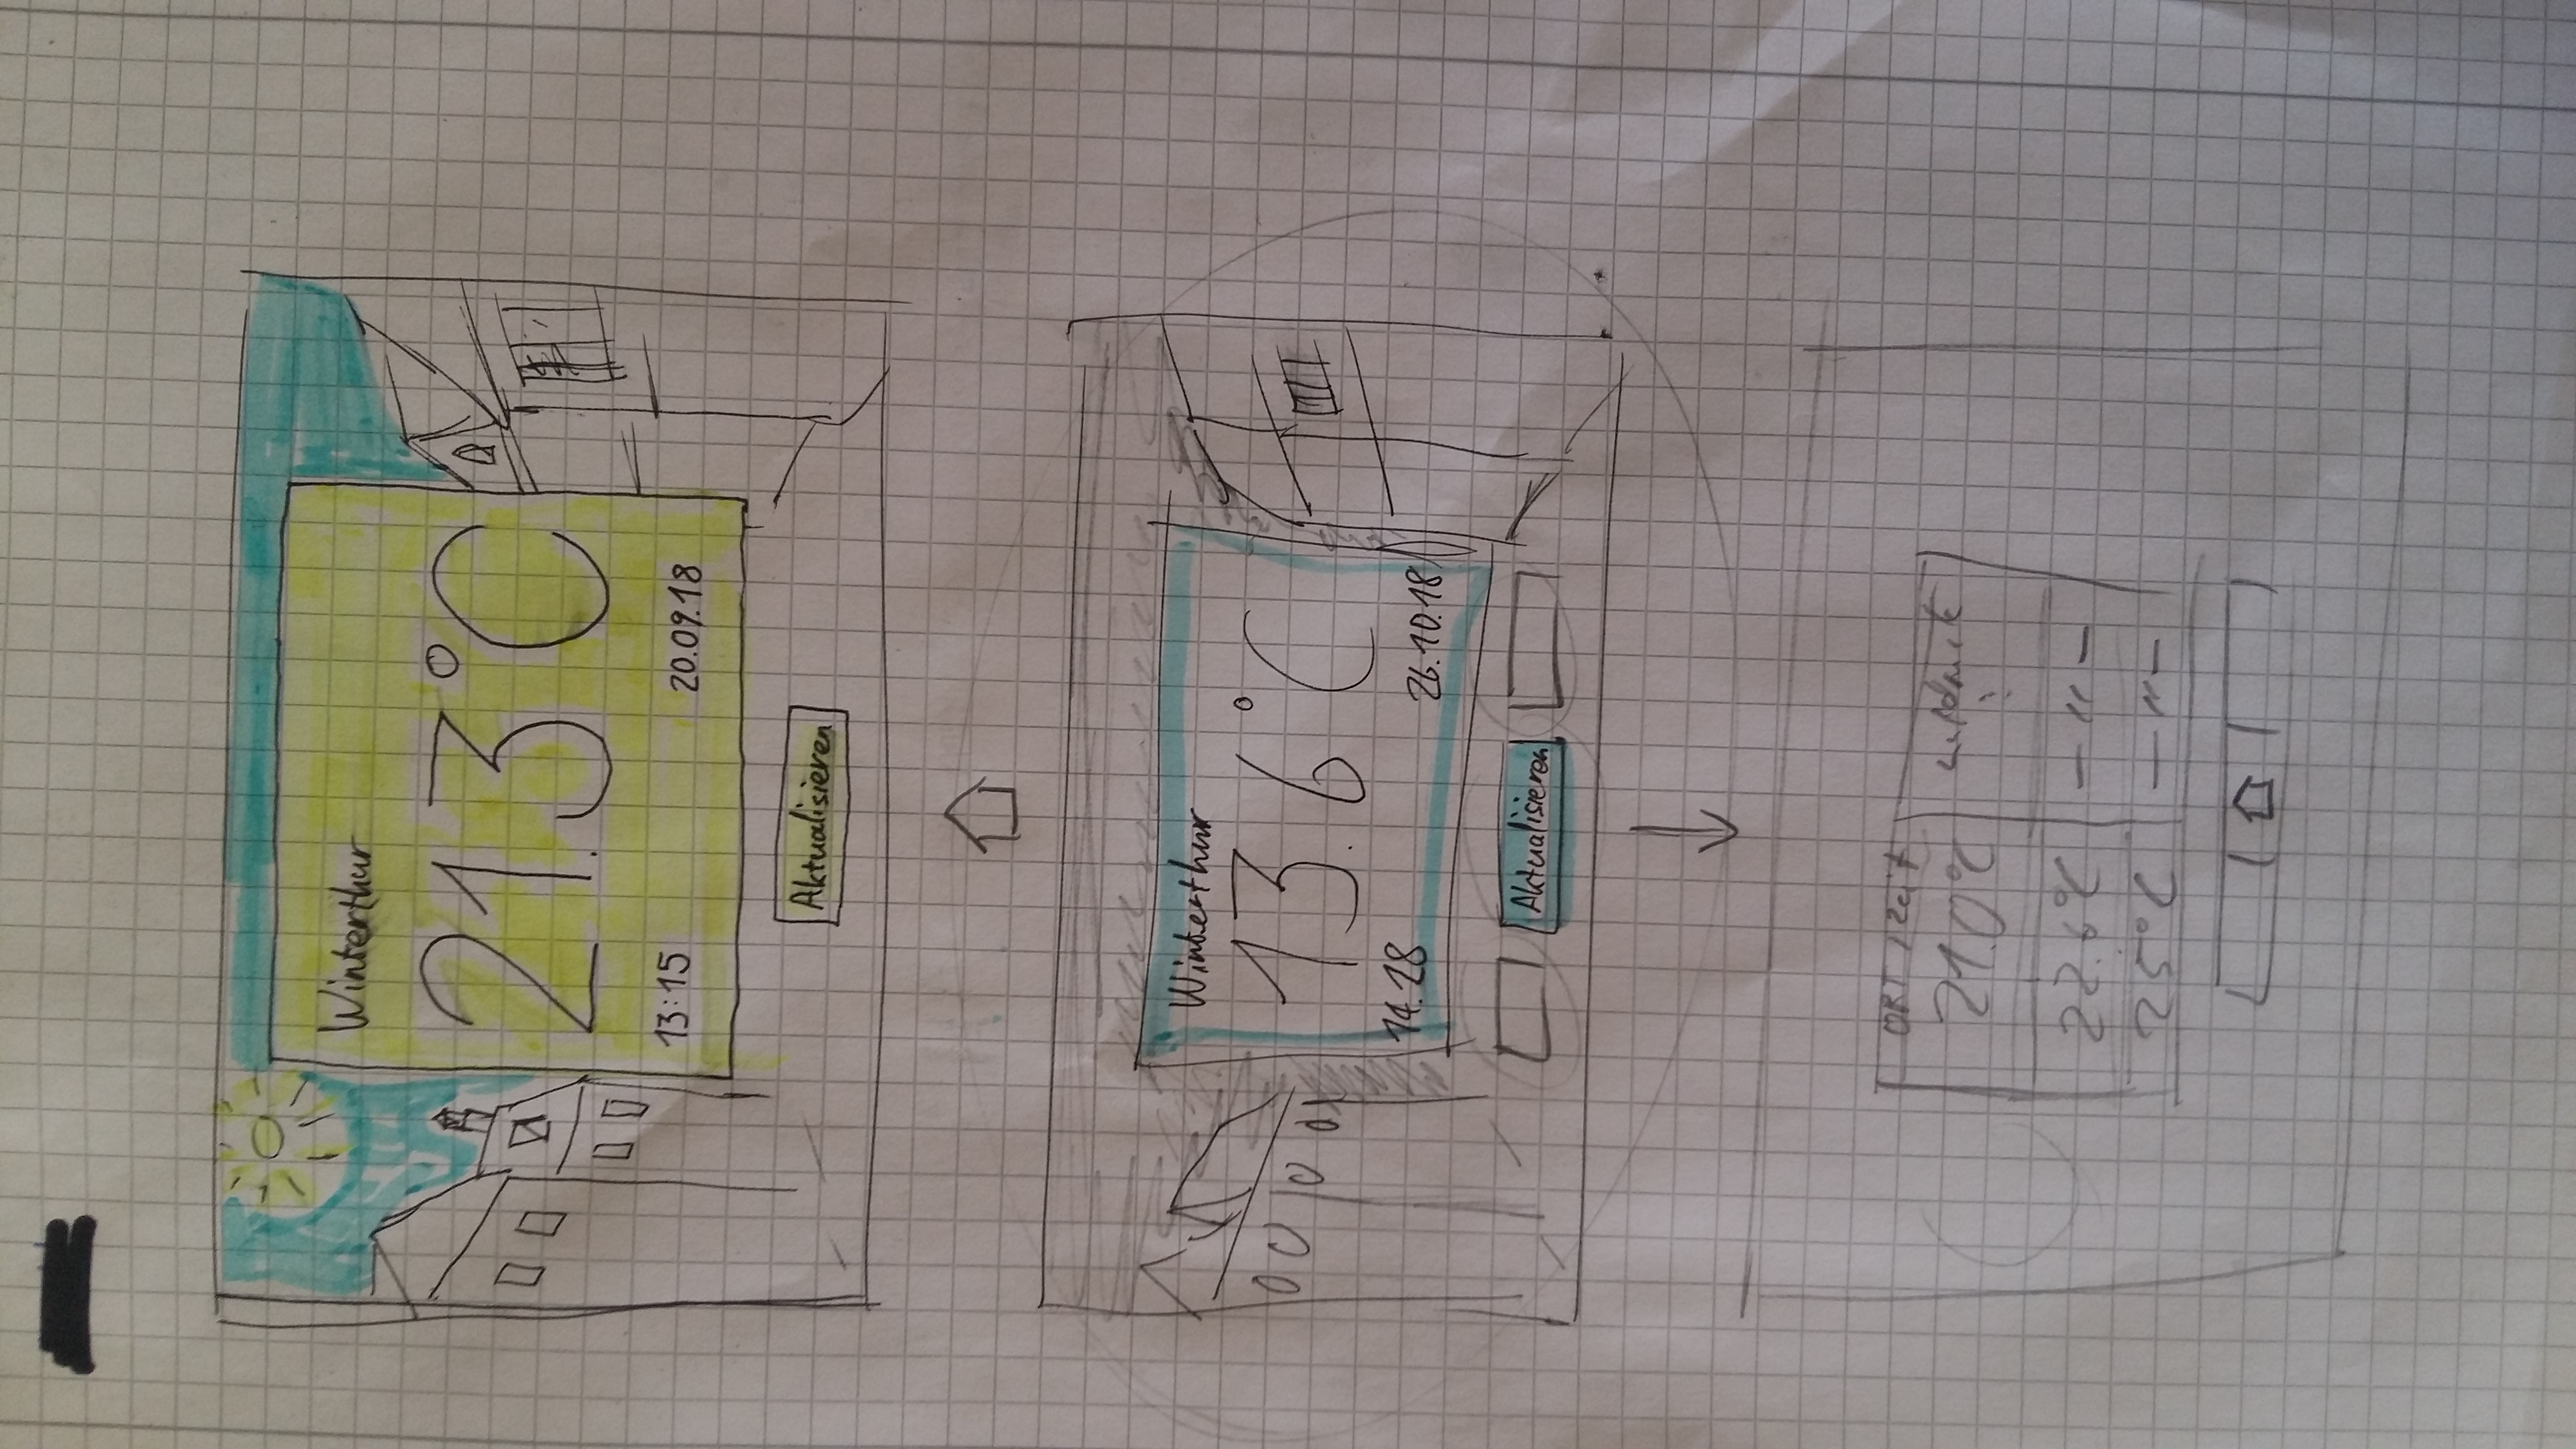 Winterthur
21.3°C
13:15 20.09.18
Aktualisieren
Winterthur
13.6°C
14.28 26.10.18
Aktualisieren
ORT / Zeit
21.0°C
22.6°C – " –
25°C – " –